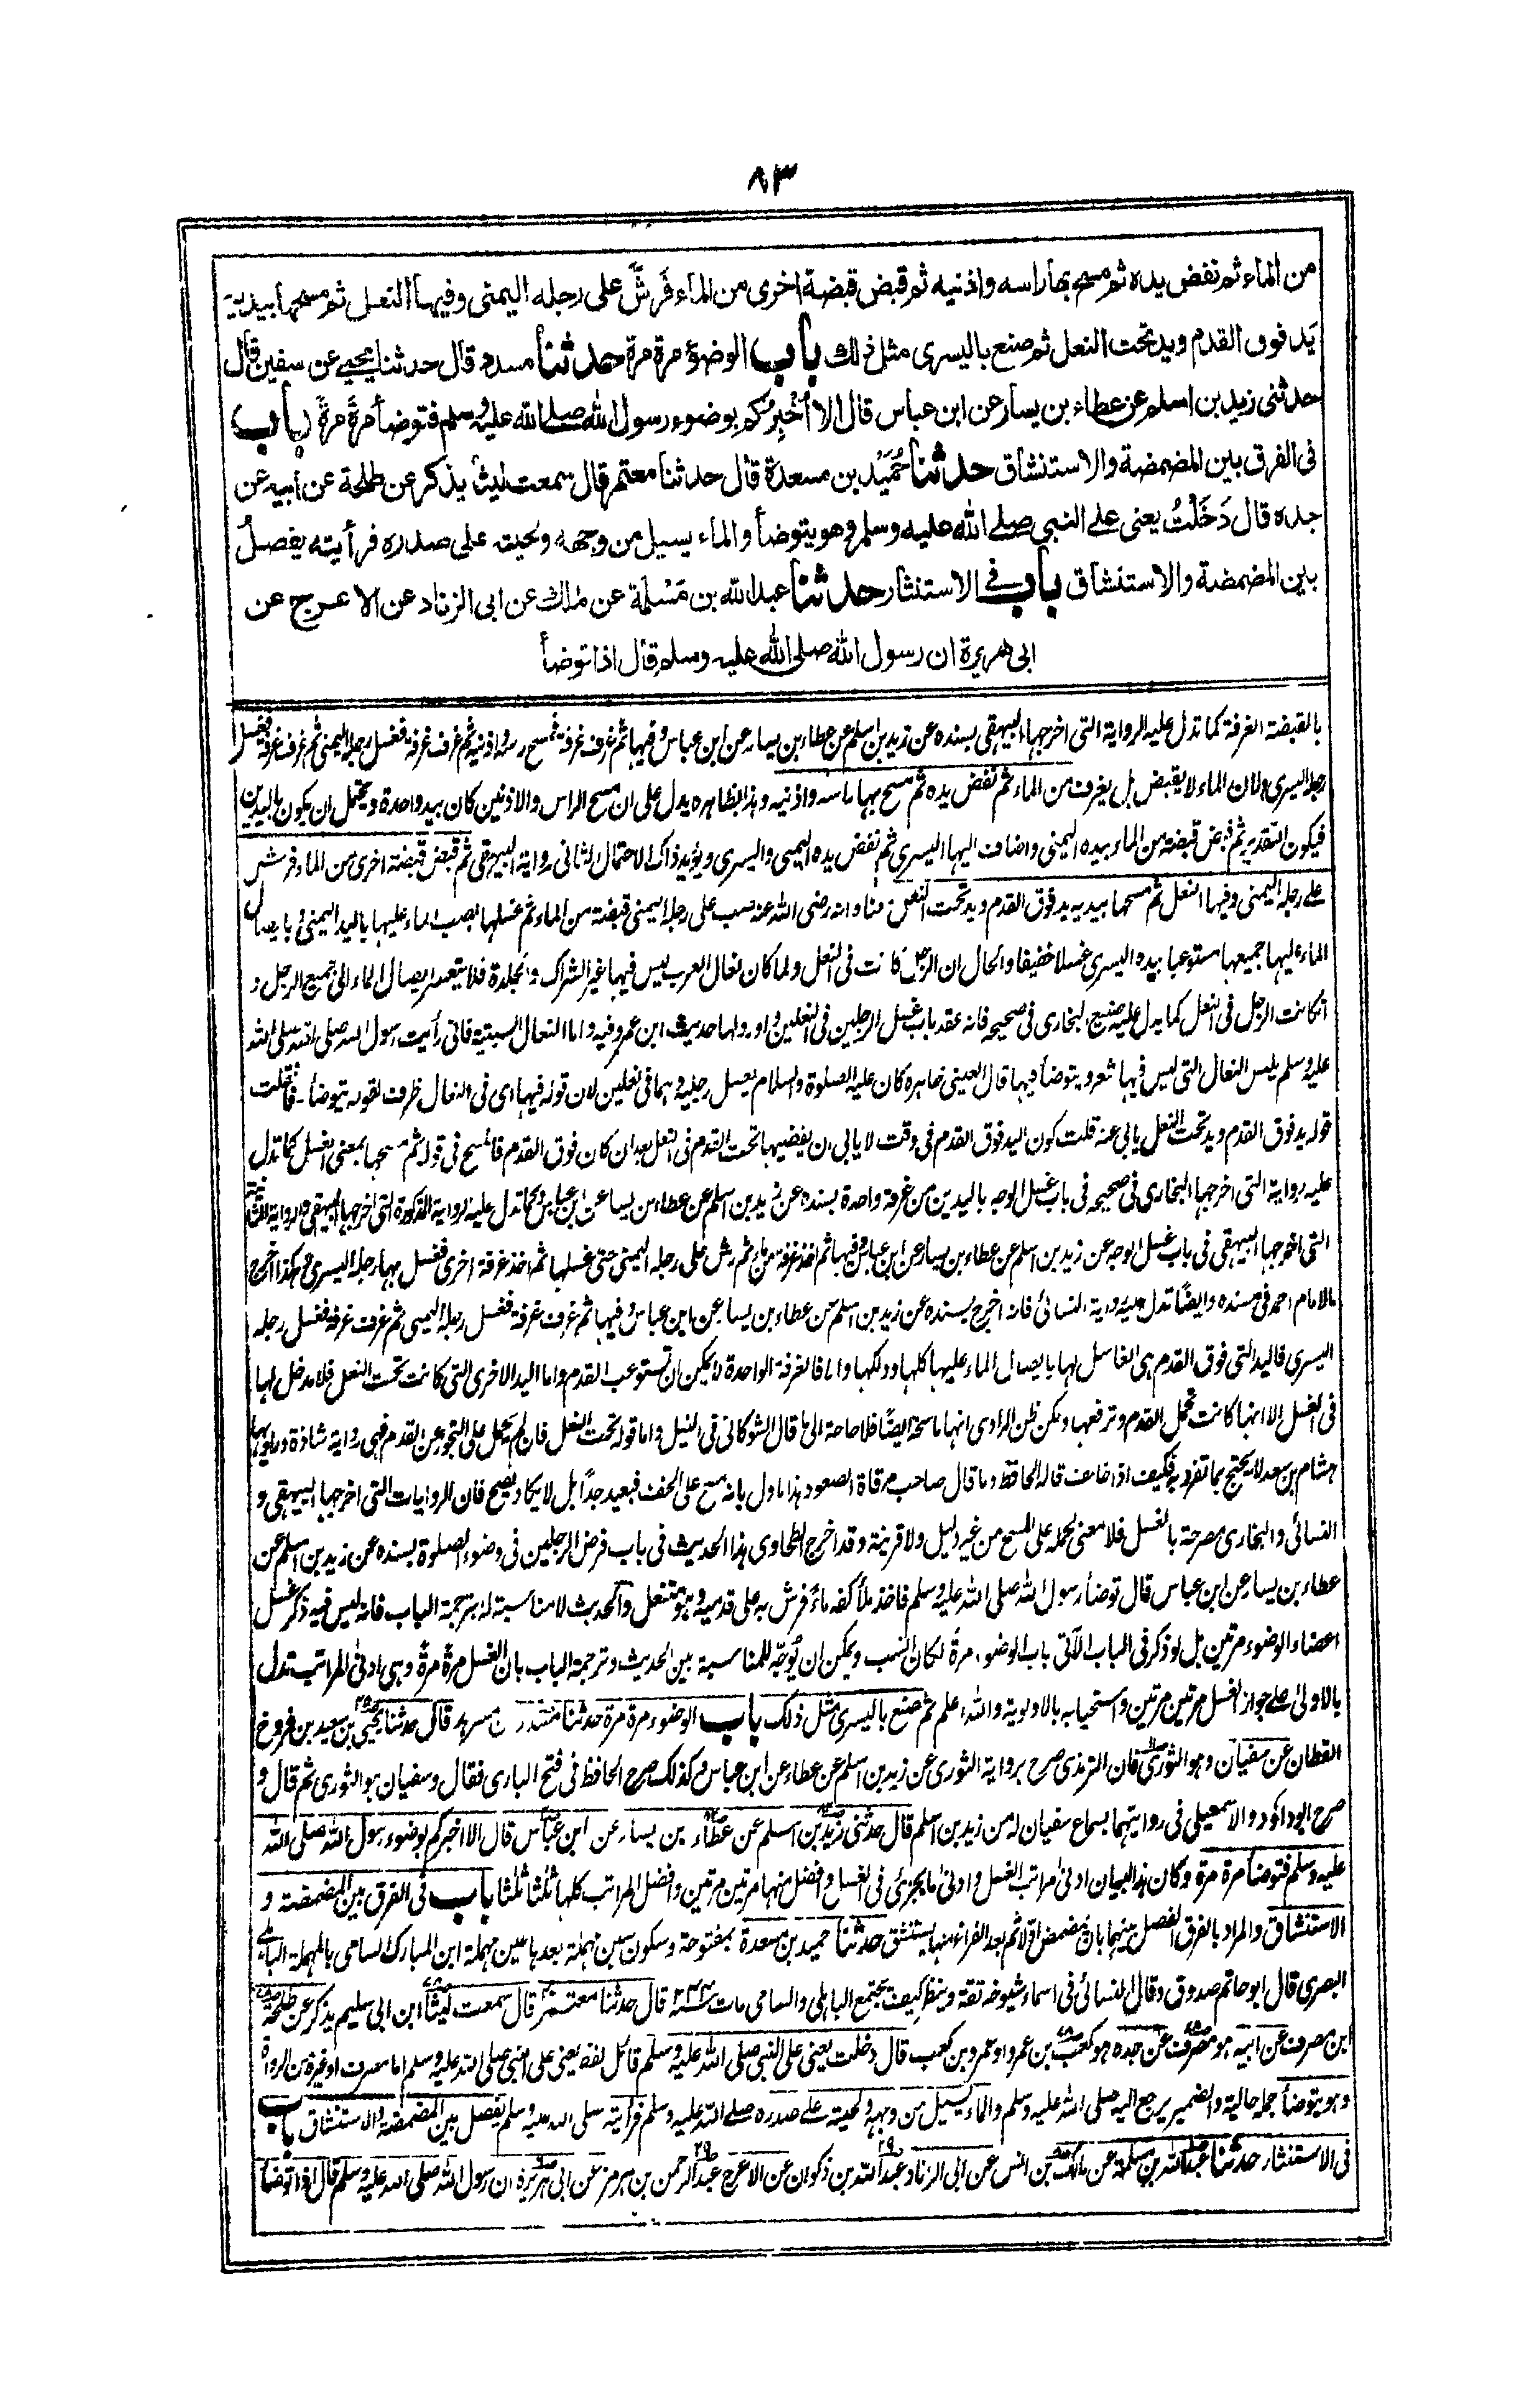 ٨٣
من الماء ثم نفض يده ثم مسح بها راسه واذنيه ثم قبض قبضة اخرى من الماء فَرَشَّ على رجله اليمنى وفيها النعل ثم مسحها بيديه
يَد فوق القدم ويد تحت النعل ثم صنع باليسرى مثل ذلك باب الوضوء مرة مرة حدثنا مسدد قال حدثنا يحيى عن سفين قال
حدثنى زيد بن اسلم عن عطاء بن يسار عن ابن عباس قال الا اُخْبِرُكم بوضوء رسول الله صلى الله عليه وسلم فتوضأ مرةً مرةً باب
فى الفرق بين المضمضة والاستنشاق حدثنا حُمَيْد بن مسعدة قال حدثنا معتمر قال سمعت ليثا يذكر عن طلحة عن ابيه عن
جده قال دَخَلْتُ يعنى على النبى صلى الله عليه وسلم وهو يتوضأ والماء يسيل من وجهه ولحيته على صدره فرأيته يفصلُ
بين المضمضة والاستنشاق باب فى الاستنثار حدثنا عبد الله بن مَسْلَمة عن مالك عن ابى الزناد عن الاعرج عن
ابى هريرة ان رسول الله صلى الله عليه وسلم قال اذا توضأ
بالقبضة الغرفة كما تدل عليه الرواية التى اخرجها البيهقى بسنده عن زيد بن اسلم عن عطاء بن يسار عن ابن عباس وفيها ثم غرف غرفة فمسح رسه واذنيه ثم غرف غرفة فغسل رجله اليمنى ثم غرف غرفة فغسل
رجله اليسرى ولان الماء لا يقبض بل يغرف من الماء ثم نفض يده ثم مسح بها راسه واذنيه وهذا بظاهره يدل على ان مسح الراس والاذنين كان بيد واحدة ويحتمل ان يكون باليدين
فيكون التقدير ثم قبض قبضة من الماء بيده اليمنى واضاف اليها اليسرى ثم نفض يده اليمنى واليسرى ويؤيد ذاك الاحتمال الثانى رواية البيهقى ثم قبض قبضة اخرى من الماء فرش
على رجله اليمنى وفيها النعل ثم مسحها بيديه يد فوق القدم ويد تحت النعل معناه انه رضى الله عنه صب على رجله اليمنى قبضة من الماء ثم غسلها بصب الماء عليها باليد اليمنى وبايصال
الماء اليها جميعها مستوعبا بيده اليسرى غسلا خفيفا والحال ان الرجل كانت فى النعل ولما كان نعال العرب ليس فيها غير الشراك والجلدة فلا يتعسر ايصال الماء الى جميع الرجل و
ان كانت الرجل فى النعل كما يدل عليه صنيع البخارى فى صحيحه فانه عقد باب غسل الرجلين فى النعلين واورد لها حديث ابن عمر وفيه واما النعال السبتية فانى رأيت رسول الله صلى الله
عليه وسلم يلبس النعال التى ليس فيها شعر ويتوضأ فيها قال العينى ظاهره كان عليه الصلوة والسلام يغسل رجليه وهما فى نعلين لان قوله فيها اى فى النعال ظرف لقوله يتوضأ - فان قلت
قوله يد فوق القدم ويد تحت النعل يابى عنه قلت كون اليد فوق القدم فى وقت لا يابى ان يفضيها تحت القدم فى النعل بعد ان كان فوق القدم فالمسح فى قوله ثم مسحها بمعنى الغسل كما تدل
عليه رواية التى اخرجها البخارى فى صحيحه فى باب غسل الوجه باليدين من غرفة واحدة بسنده عن زيد بن اسلم عن عطاء بن يسار عن ابن عباس وكما تدل عليه الرواية المذكورة التى اخرجها البيهقى والرواية الثانية
التى اخرجها البيهقى فى باب غسل الوجه عن زيد بن اسلم عن عطاء بن يسار عن ابن عباس وفيها ثم اخذ غرفة من ماء ثم رش على رجله اليمنى حتى غسلها ثم اخذ غرفة اخرى فغسل بها رجله اليسرى وهكذا اخرج
الامام احمد فى مسنده وايضًا تدل عليه رواية النسائى فانه اخرج بسنده عن زيد بن اسلم عن عطاء بن يسار عن ابن عباس وفيها ثم غرف غرفة فغسل رجله اليمنى ثم غرف غرفة فغسل رجله
اليسرى فاليد التى فوق القدم هى الغاسل لها بايصال الماء عليها كلها ودلكها والا فالغرفة الواحدة لا يمكن ان تستوعب القدم واما اليد الاخرى التى كانت تحت النعل فلا مدخل لها
فى الغسل الا انها كانت تحمل القدم وترفعها ولكن ظن الراوى انها ماسحة ايضًا فلا حاجة الى ما قال الشوكانى فى النيل واما قوله تحت النعل فان لم يحمل على التجوز عن القدم فهى رواية شاذة وراويها
هشام بن سعد لا يحتج بما تفرد به فكيف اذا خالف قاله الحافظ وما قال صاحب مرقاة الصعود هذا ماول بانه مسح على الخف فبعيد جدًا بل لا يكاد يصح فان الروايات التى اخرجها البيهقى و
النسائى والبخارى مصرحة بالغسل فلا معنى لحمله على المسح من غير دليل ولا قرينة وقد اخرج الطحاوى هذا الحديث فى باب فرض الرجلين فى وضوء الصلوة بسنده عن زيد بن اسلم عن
عطاء بن يسار عن ابن عباس قال توضأ رسول الله صلى الله عليه وسلم فاخذ ملأ كفه ماءً فرش به على قدميه وهو متنعل والحديث لا مناسبة له بترجمة الباب فانه ليس فيه ذكر غسل
اعضاء الوضوء مرتين بل لو ذكر فى الباب الآتى باب الوضوء مرةً لكان انسب ويمكن ان يُوجّه للمناسبة بين الحديث وترجمة الباب بان الغسل مرةً مرةً وهى ادنى المراتب تدل
بالاولى على جواز الغسل مرتين مرتين واستحبابه بالاولوية والله اعلم ثم صنع باليسرى مثل ذلك باب الوضوء مرة مرة حدثنا مسدد بن مسرهد قال حدثنا يحيى بن سعيد بن فروخ
القطان عن سفيان وهو الثورى فان الترمذى صرح برواية الثورى عن زيد بن اسلم عن عطاء عن ابن عباس وكذلك صرح الحافظ فى فتح البارى فقال وسفيان هو الثورى ثم قال و
صرح ابوداؤد والاسمعيلى فى روايتهما بسماع سفيان له من زيد بن اسلم قال حدثنى زيد بن اسلم عن عطاء بن يسار عن ابن عباس قال الا اخبركم بوضوء رسول الله صلى الله
عليه وسلم فتوضأ مرة مرة وكان هذا لبيان ادنى مراتب الغسل وادنى ما يجزئ فى الغسل وافضل منهما مرتين مرتين وافضل المراتب كلها ثلثا ثلثا باب فى الفرق بين المضمضة و
الاستنشاق والمراد بالفرق الفصل بينهما بان يمضمض اوّلا ثم بعد الفراغ منها يستنشق حدثنا حميد بن مسعدة بمفتوحة وسكون سين مهملة بعدها عين مهملة ابن المبارك السامى بالمهملة الباهلى
البصرى قال ابو حاتم صدوق وقال النسائى فى اسماء شيوخه ثقة وينظر كيف يجتمع الباهلى والسامى مات سنة ٢٤٤ قال حدثنا معتمر قال سمعت ليثًا ابن ابى سليم يذكر عن طلحة
ابن مصرف عن ابيه هو مصرف عن جده هو كعب بن عمرو او عمرو بن كعب قال دخلت يعنى على النبى صلى الله عليه وسلم قائل لفظ يعنى على النبى صلى الله عليه وسلم اما مصرف او غيره من الرواة
وهو يتوضأ جملة حالية والضمير يرجع اليه صلى الله عليه وسلم والماء يسيل من وجهه ولحيته على صدره صلى الله عليه وسلم فرأيته صلى الله عليه وسلم يفصل بين المضمضة والاستنشاق باب
فى الاستنثار حدثنا عبد الله بن مسلمة عن مالك بن انس عن ابى الزناد عبد الله بن ذكوان عن الاعرج عبد الرحمن بن هرمز عن ابى هريرة ان رسول الله صلى الله عليه وسلم قال اذا توضأ